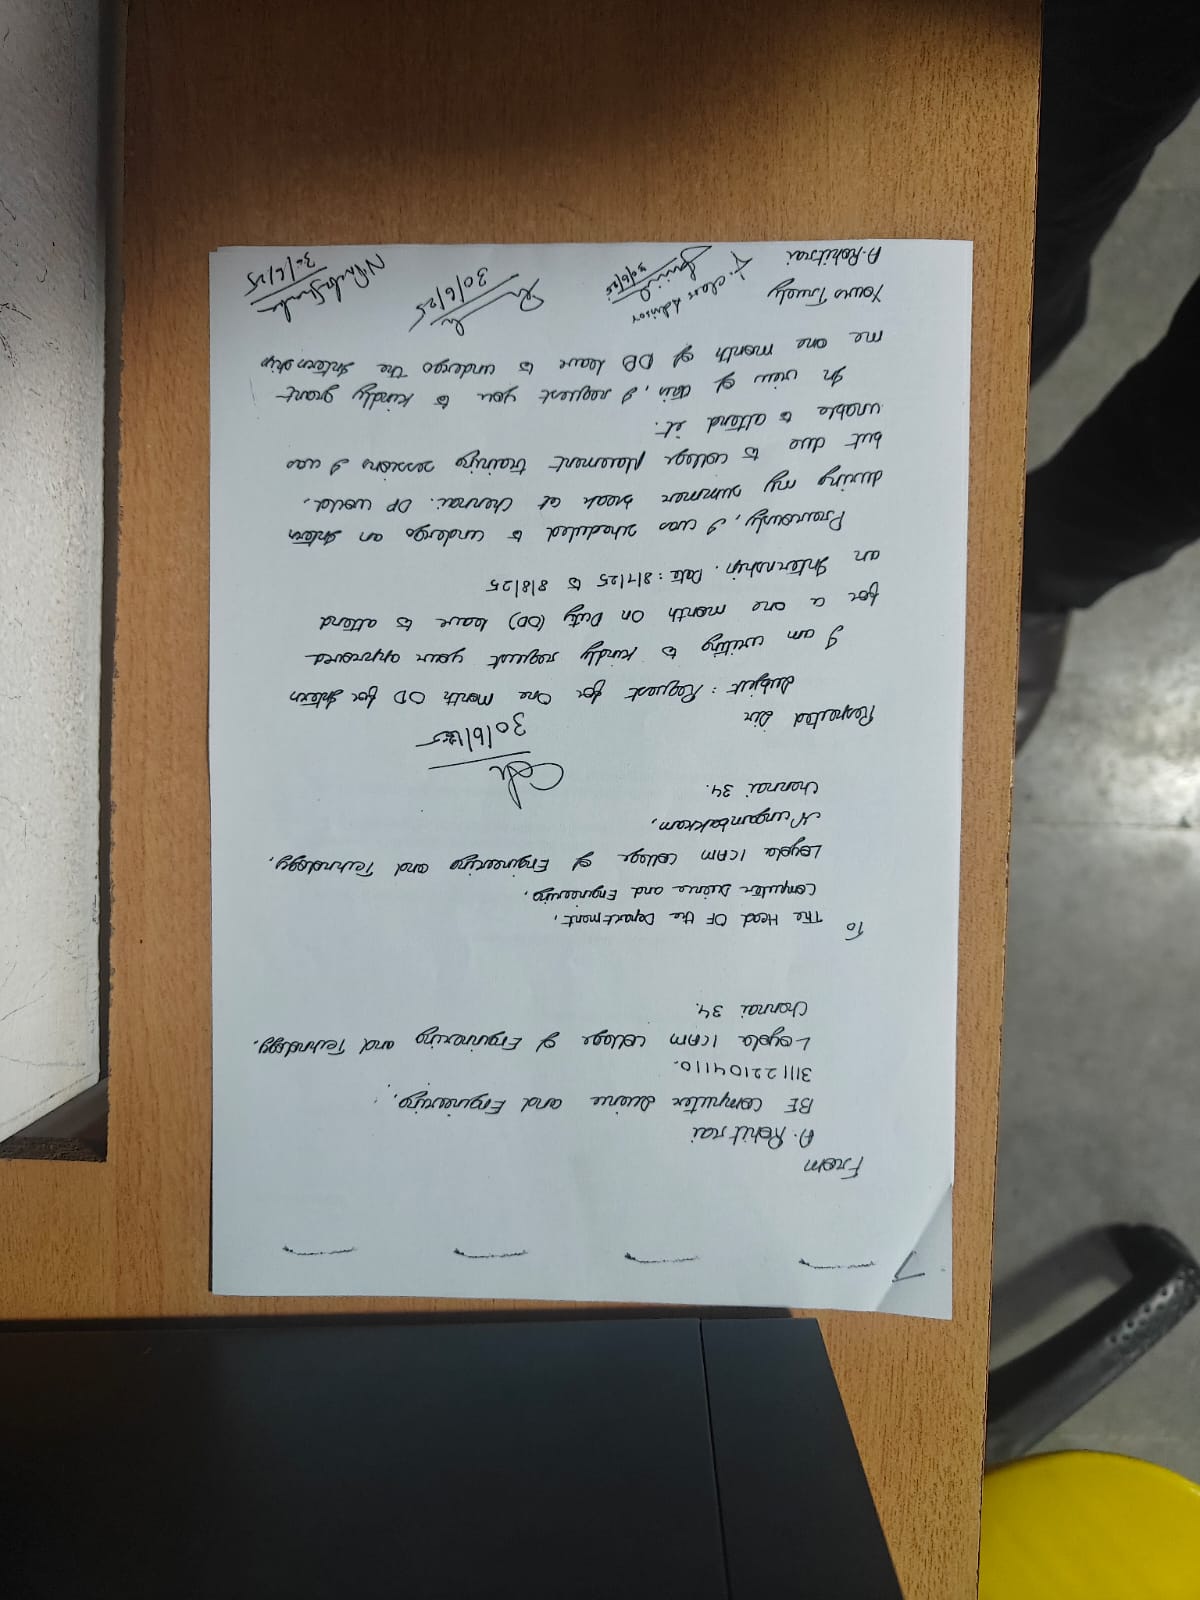 From
A. Rohit rai
BE Computer Science and Engineering,
311122104110.
Loyola ICAM College of Engineering and Technology,
Chennai 34.
To
The Head OF the Department,
Computer Science and Engineering,
Loyola ICAM College of Engineering and Technology,
Nungambakkam,
Chennai 34.
30/6/25
Respected Sir
Subject : Request for One month OD for Intern
I am writing to kindly request your approval
for a one month On Duty (OD) leave to attend
an Internship. Date : 8/7/25 to 8/8/25
Previously, I was scheduled to undergo an Intern
during my summer break at Chennai. DP World,
but due to college Placement training sessions I was
unable to attend it.
In view of this, I request you to kindly grant
me one month of OD leave to undergo the Internship
Yours Truely
A. Rohit rai
Class Advisor
30/6/25
30/6/25
30/6/25